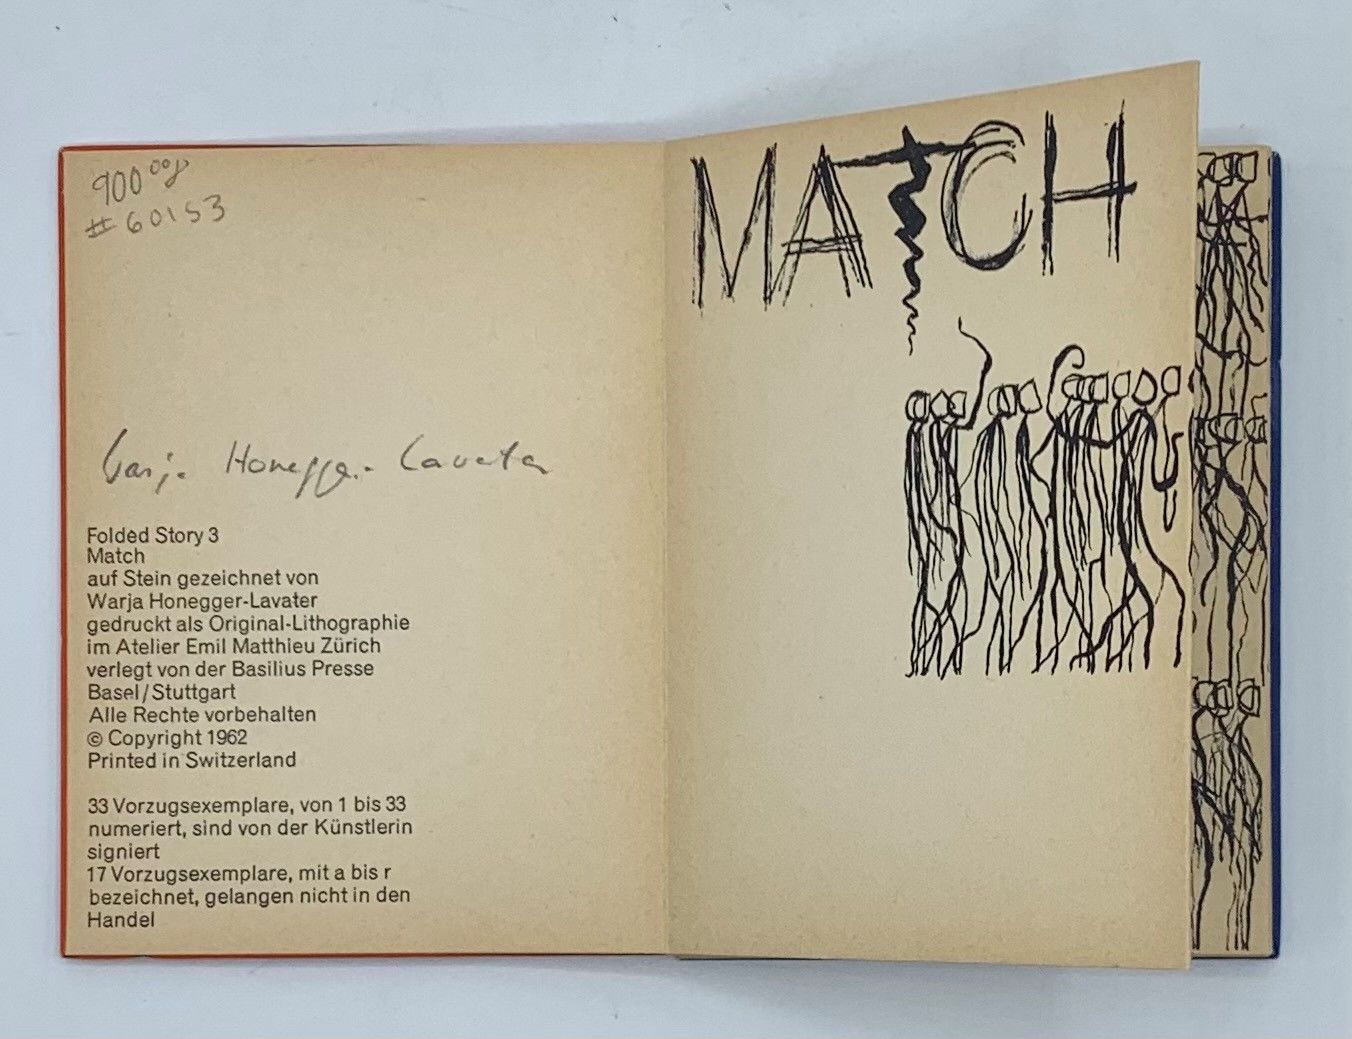 900 00
#60153
Warja Honegger-Lavater
Folded Story 3
Match
auf Stein gezeichnet von
Warja Honegger-Lavater
gedruckt als Original-Lithographie
im Atelier Emil Matthieu Zürich
verlegt von der Basilius Presse
Basel/Stuttgart
Alle Rechte vorbehalten
© Copyright 1962
Printed in Switzerland
33 Vorzugsexemplare, von 1 bis 33
numeriert, sind von der Künstlerin
signiert
17 Vorzugsexemplare, mit a bis r
bezeichnet, gelangen nicht in den
Handel
MATCH